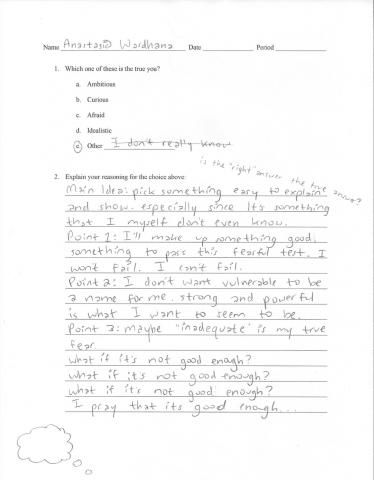 Name Anastasia Wardhana Date Period
1. Which one of these is the true you?
a. Ambitious
b. Curious
c. Afraid
d. Idealistic
e. Other I don't really know
is the "right" answer the true answer?
2. Explain your reasoning for the choice above:
Main Idea: pick something easy to explain
and show. especially since It's something
that I myself don't even know.
Point 1: I'll make up something good.
something to pass this fearful test. I
won't fail. I can't fail.
Point 2: I don't want vulnerable to be
a name for me. strong and powerful
is what I want to seem to be.
Point 3: maybe "inadequate" is my true
fear.
what if it's not good enough?
what if it's not good enough?
what if it's not good enough?
I pray that its good enough...